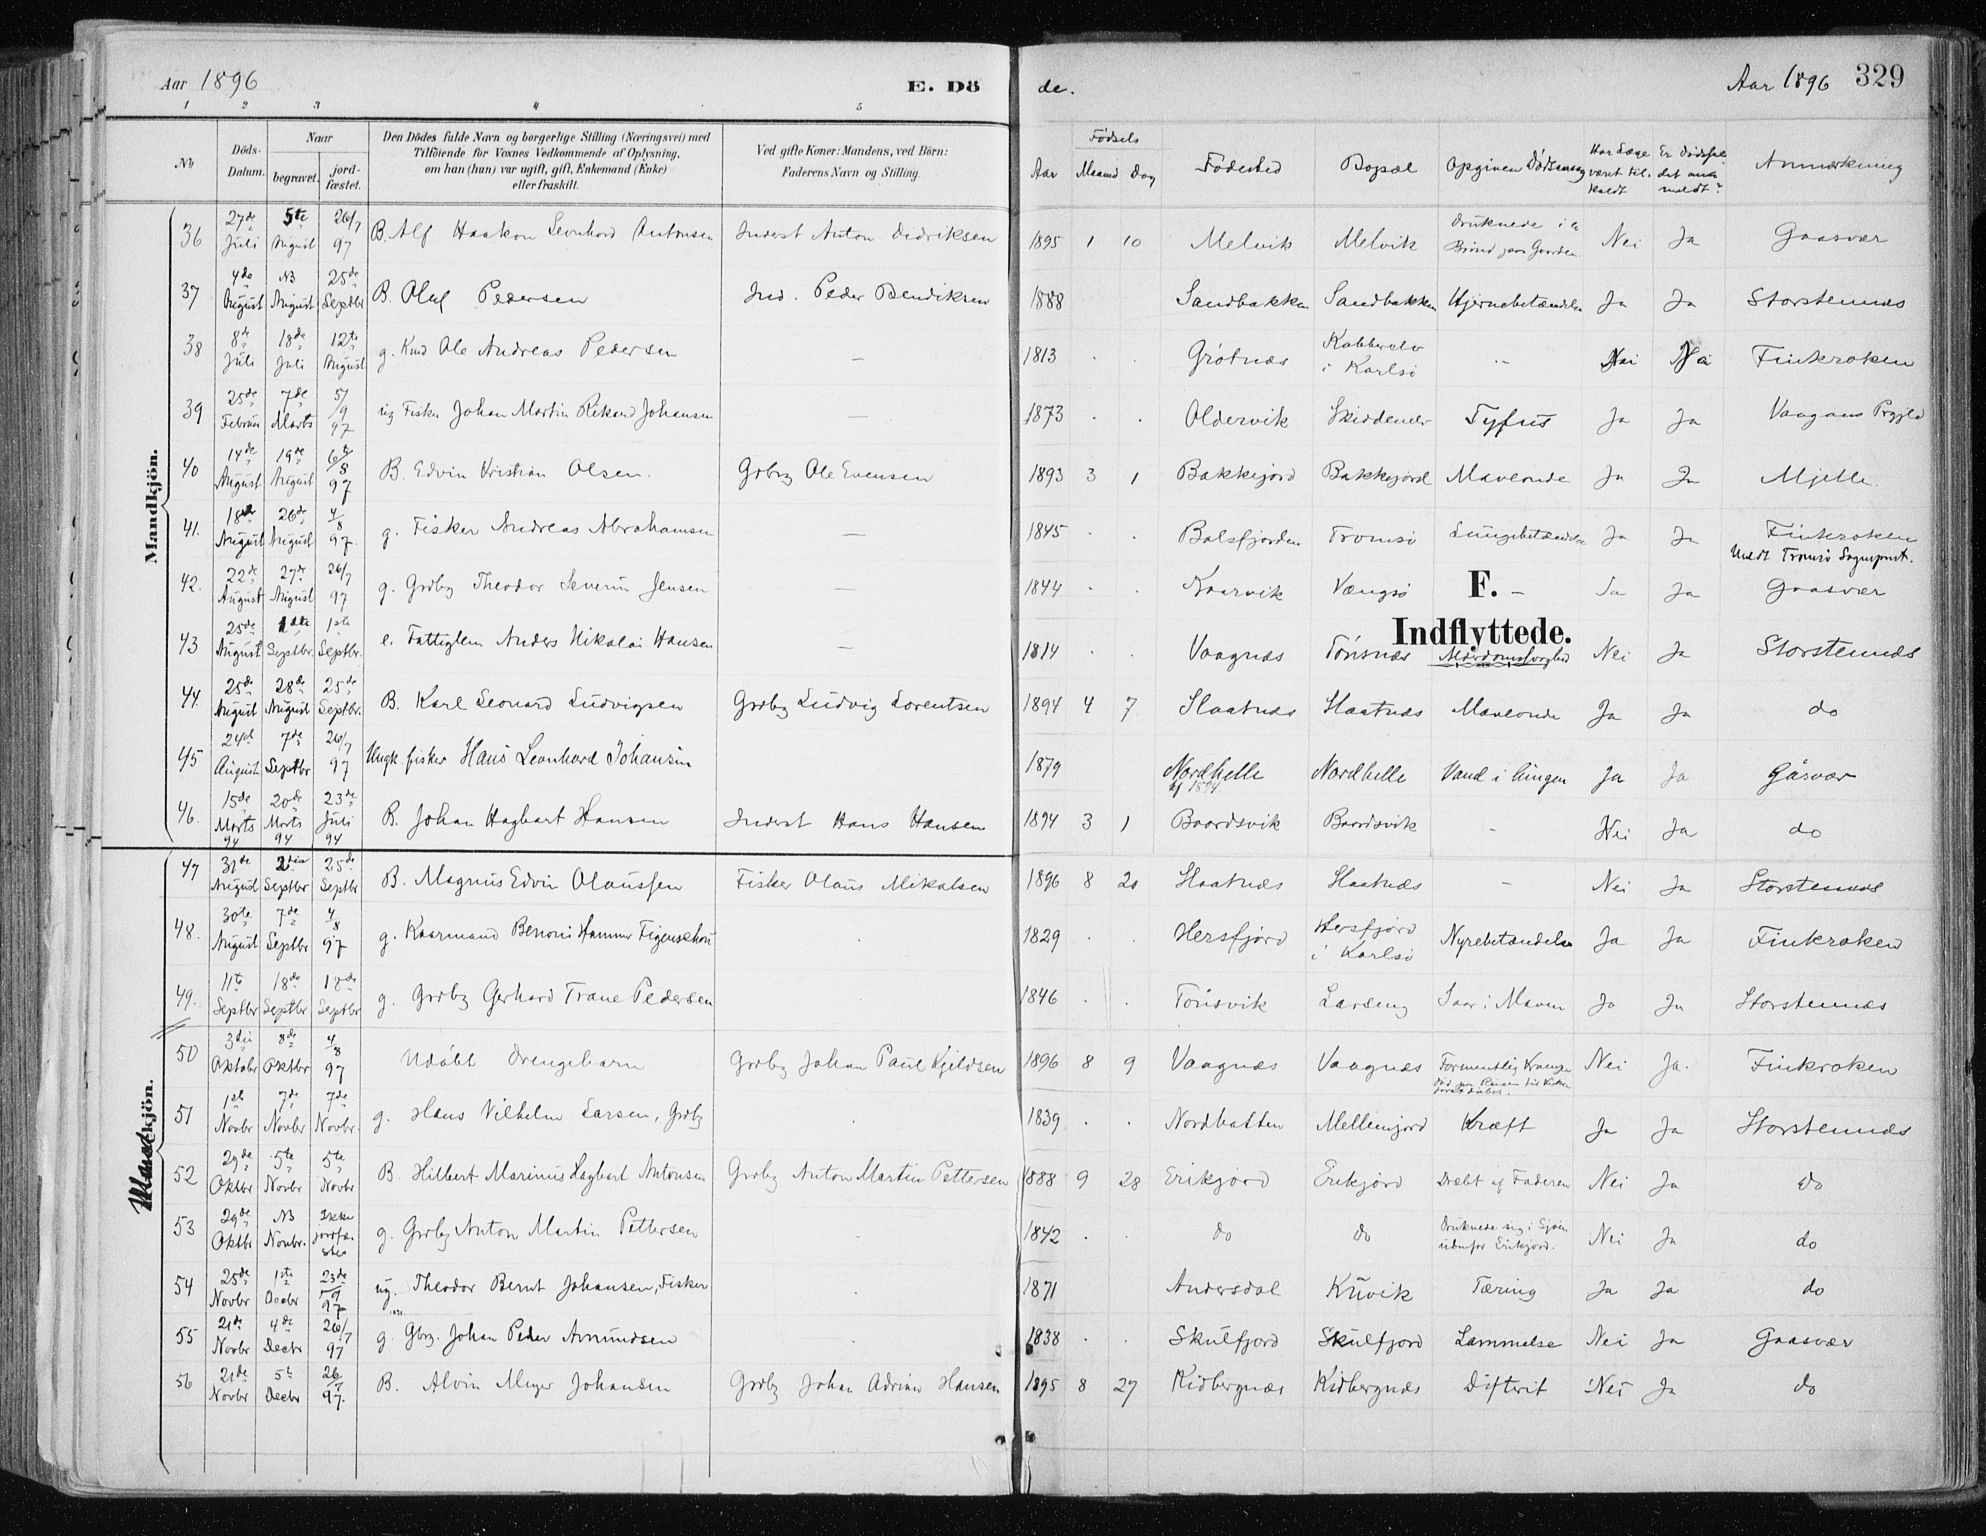 Aar 1896 E. Dö de. Aar 1896 329
1 2 3 4 5
No Döds-Datum. Naar begravet. jord-fæstet. Den Dödes fulde Navn og borgerlige Stilling (Næringsvei) med Tilföiende for Voxnes Vedkommende af Oplysning, om han (hun) var ugift, gift, Enkemand (Enke) eller fraskilt. Ved gifte Koner: Mandens, ved Börn: Faderens Navn og Stilling. Fødsels Aar Maaned Dag Fødested Bopæl Opgiven Dødsaarsag Har Læge været til-kaldt Er Dødsfal-det an-meldt? Anmærkning
Mandkjön.
36 27de Juli 5te August 26/7 97 B. Alf Haakon Leonhard Antonsen Inderst Anton Didriksen 1895 1 10 Melvik Melvik Druknede i en Brønd paa Gaarden Nei Ja Gaasvær
37 4de August N3 August 25de Septbr B. Oluf Pedersen Ind. Peder Bendiksen 1888 Sandbakken Sandbakken Hjernebetændelse Ja Ja Storstennes
38 8de Juli 18de Juli 12te August g. Kaarmd Ole Andreas Pedersen — 1813 . . Grøtnæs Kobberelv i Karlsö — Nei Nei Finkroken
39 25de Februar 7de Marts 5/9 97 ug Fisker Johan Martin Rikard Johansen — 1873 . . Oldervik Skiddenelv Tyfus Ja Ja Vaagans Prgjld
40 14de August 19de August 6/8 97 B. Edvin Kristian Olsen. Grdbg Ole Evensen 1893 3 1 Bakkejord Bakkejord Maveonde Ja Ja Mjelle.
41. 18de August 26de August 4/8 97. g. Fisker Andreas Abrahamsen — 1845 . . Balsfjorden Tromsö Lungebetændelse Ja Ja Finkroken
Meldt Tromsö Sogneprest.
42. 22de August 27de August 26/7 97 g. Grdbg Theodor Severin Jensen — 1844 . . Kaarvik Vængsö F. — Ja Ja Gaasvær
Indflyttede.
43 25de August 1ste Septbr. 1ste Septbr. e. Fattiglem Anders Nikolai Hansen — 1814 . . Vaagnæs Tönsnæs Alderdomssvaghed Nei Ja Storstennæs
44. 25de August 28de August 25de Septbr. B. Karl Leonard Ludvigsen Grdbg Ludvig Lorentsen 1894 4 7 Slaatnæs Slaatnæs Maveonde Ja Ja do
45 24d August 7de Septbr 26/7 97 Ungk. fisker Hans Leonhard Johansen 1879 Nordhelle Nordhelle Vand i Lungen Ja Ja Gåsvær
46. 15de Marts 94 20de Marts 94 23de Juli 94 B. Johan Hagbart Hansen Inderst Hans Hansen 1894 3 1 Baardsvik Baardsvik — Nei Ja do
47 31de August 2den Septbr 25de Septbr B. Magnus Edvin Olaussen Fisker Olaus Mikalsen 1896 8 20 Slaatnæs Slaatnæs — Nei Ja Storstennes
48. 30te August 7de Septbr 4/8 97 g. Kaarmand Benoni Hammer Figenschou . 1829 . . Hersfjord Hersfjord i Karlsö Nyrebetændelse Ja Ja Finkroken
49. 11te Septbr 18de Septbr 18de Septbr g. Grdbg Gerhard Trane Pedersen . 1846 . . Tönsvik Larseng Saar i Maven Ja Ja Storstennæs
50 3die Oktober 8de Oktbr 4/8 97 Udöbt Drengebarn Grdbg Johan Paul Kjeldsen 1896 8 9 Vaagnæs Vaagnæs Formentlig Krampe Nei Ja. Finkroken
51 1ste Novbr 7de Novbr 7de Novbr. g. Hans Vilhelm Larsen, Grdbg . 1839 . . Nordbotten Mellemjord Kræft Ja Ja Storstennæs
52 29de Oktbr 5te Novbr 5te Novbr B. Hilbert Marinus Hagbart Antonsen Grdbg Anton Martin Pettersen 1888 9 28 Erikjord Erikjord Dræbt af Faderen Nei Ja do
53 29de Oktbr N3 Novbr. Ikke jordfæ-stet g. Grdbg Anton Martin Pettersen . 1842 . . do do Druknede sig i Sjøen udenfor Erikjord. Nei Ja do
54 25de Novbr 1ste Decbr 23de 5/9 97 ug. Theodor Bernt Johansen, Fisker . 1871 Andersdal Krüvik Tæring Ja Ja do
55 21de Novbr 4de Decbr 26/7 97 g. Gbrg. Johan Peder Amundsen . 1838 . . Skulfjord Skulfjord Lammelse Nei Ja Gaasvær
56 21de Novbr 5te Decbr 26/7 97. B. Alvin Meyer Johansen Grdbg Johan Adrian Hansen 1895 8 27 Kidbergnæs Kidbergnæs Difterit Nei Ja do